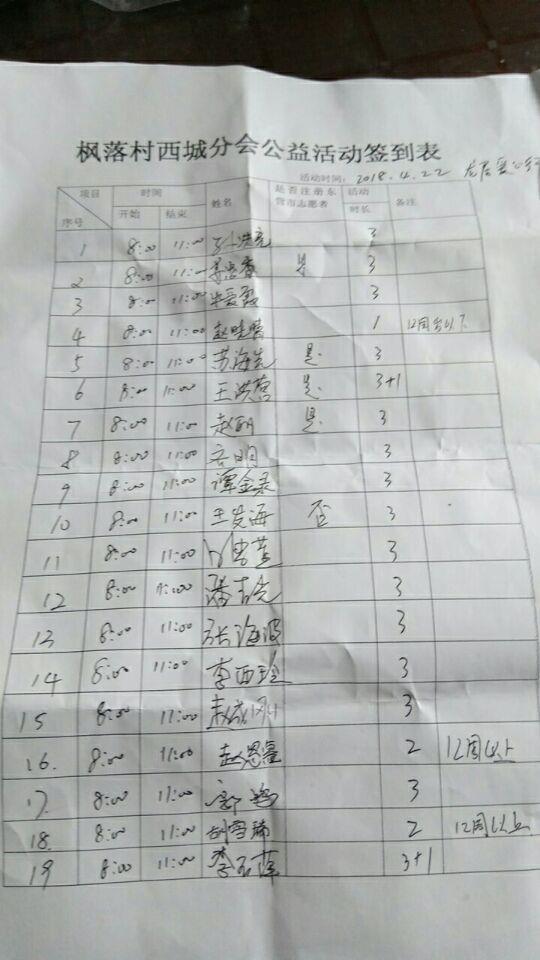 枫落村西城分会公益活动签到表
活动时间: 2018.4.22
项目 时间 姓名 是否注册东营市志愿者 活动时长 备注
序号 开始 结束
1 8:00 11:00 3
2 8:00 11:00 是 3
3 8:00 11:00 3
4 8:00 11:00 赵晓晴 1 12周岁以下
5 8:00 11:00 苏海先 是. 3
6 8:00 11:00 王洪营 是. 3+1
7 8:00 11:00 赵丽 是. 3
8 8:00 11:00 齐明 3
9 8:00 11:00 谭金录 3
10 8:00 11:00 王发海 否 3
11 8:00 11:00 3
12 8:00 11:00 潘吉亮 3
13 8:00 11:00 张海波 3
14 8:00 11:00 李西玲 3
15 8:00 11:00 赵成刚 3
16. 8:00 11:00 赵恩星 2 12周以上
17. 8:00 11:00 3
18. 8:00 11:00 胡雪瑞 2 12周以上
19 8:00 11:00 李玉萍 3+1